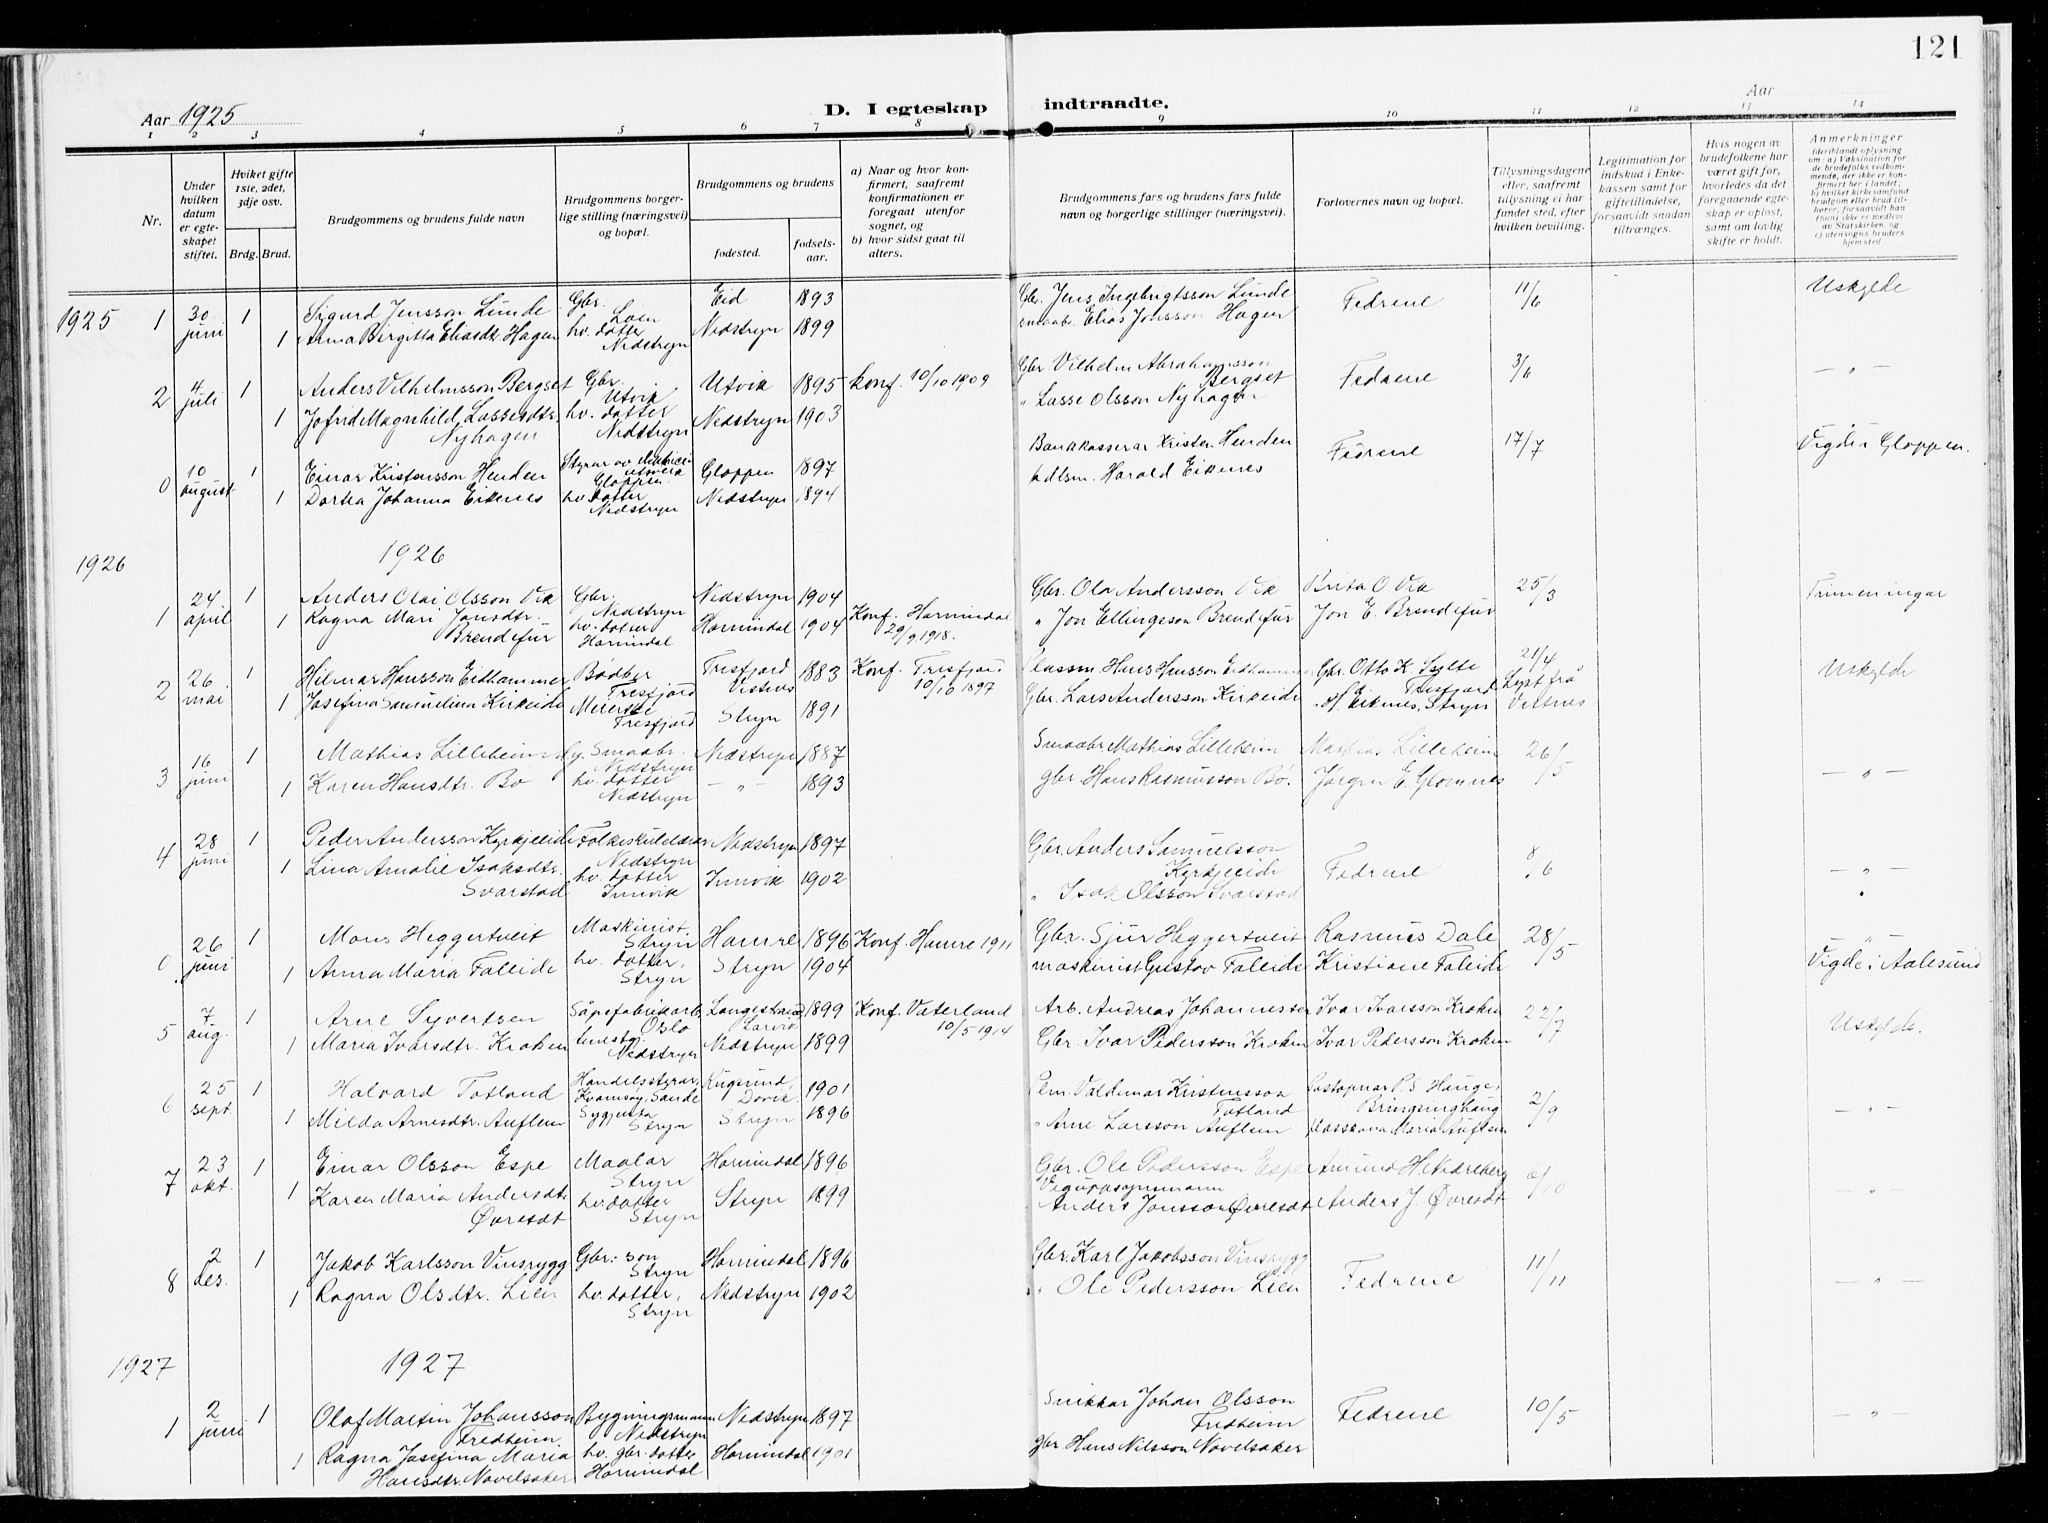 121
Aar 1925
D. I egteskap indtraadte.
Aar
1 2 3 4 5 6 7 8 9 10 11 12 13 14
Nr.
Under hvilken datum er egteskapet stiftet.
Hvilket gifte 1ste, 2det, 3dje osv.
Brdg. Brud.
Brudgommens og brudens fulde navn
Brudgommens borgerlige stilling (næringsvei) og bopæl.
Brudgommens og brudens
fødested.
fødselsaar.
a) Naar og hvor konfirmert, saafremt konfirmationen er foregaat utenfor sognet, og
b) hvor sidst gaat til alters.
Brudgommens fars og brudens fars fulde navn og borgerlige stillinger (næringsvei).
Forlovernes navn og bopæl.
Tillysningsdagene eller, saafremt tillysning ei har fundet sted, efter hvilken bevilling.
Legitimation for indskud i Enkekassen samt for giftetilladelse, forsaavidt saadan tiltrænges.
Hvis nogen av brudefolkene har været gift før, hvorledes da det foregaaende egteskap er opløst, samt om lovlig skifte er holdt.
Anmerkninger
1925 1 30 juni 1 Sigurd Jensson Lunde Gbr. Loen Eid 1893 Gbr. Jens Ingebrigtsson Lunde Fedrene 11/6 Uskylde
1 Anna Birgitta Eliasdtr. Hagen hv. dotter Nedstryn Nedstryn 1899 smaabr. Elias Jonsson Hagen
2 4 juli 1 Anders Vilhelmsson Bergset Gbr. Utvik Utvik 1895 konf. 10/10 1909 Gbr. Vilhelm Abrahamsson Bergset Fedrene 3/6 — " —
1 Jofrid Magnhild Lassesdtr. Nyhagen hv. dotter Nedstryn Nedstryn 1903 " Lasse Olsson Nyhagen
0 10 august 1 Einar Kristensson Henden Styrar av Gloppen Gloppen 1897 Bankkasserar Kristen Henden Fedrene 17/7 Vigde i Gloppen.
1 Dortea Johanna Eiknes hv. dotter Nedstryn Nedstryn 1894 Harald Eiknes
1926 1926
1 24 april 1 Anders Olai Olsson Vik Gbr. Nedstryn Nedstryn 1904 Gbr. Ola Andersson Vik Brita O Vik 25/3 Trimeningar
1 Ragna Mari Jonsdtr. Brendefur hv. dotter Hornindal Hornindal 1904 Konf. Hornindal 29/9 1918. " Jon Ellingsson Brendefur Jon E. Brendefur
2 26 mai 1 Hilmar Hansson Eidhammer Bødker Tresfjord Tresfjord Vestnes 1883 Konf. Tresfjord 10/10 1897 Plassm. Hans Hansson Eidhammer Gbr. Otto K Sylte Tresfjord 21/4 Lyst frå Vestnes Uskylde
1 Josefina Samueline Kirkeide Meierske Tresfjord Stryn 1891 Gbr. Lars Andersson Kirkeide Eiknes, Stryn
3 16 juni 1 Mathias Lilleheim Smaabr. Nedstryn Nedstryn 1887 Smaabr Mathias Lilleheim Mathias Lilleheim 26/5 — " —
1 Karen Hansdtr. Bø hv. dotter Nedstryn — " — 1893 gbr Hans Rasmusson Bø. Jørgen E. Glomnes
4 28 juni 1 Peder Andersson Kyrkjeeide Folkeskulelærar Nedstryn Nedstryn 1897 Gbr. Anders Samuelsson Kyrkjeeide Fedrene 8/6 — " —
1 Lina Amalie Isaksdtr. Svarstad hv. dotter Innvik Innvik 1902 " Isak Olsson Svarstad
0 26 juni 1 Mons Heggertveit Maskinist, Stryn Hamre 1896 Konf. Hamre 1911 Gbr. Sjur Heggertveit Rasmus Dale 28/5 — " — Vigde i Aalesund
1 Anna Maria Faleide hv. dotter, Stryn Stryn 1904 maskinist Gustav Faleide Kristiane Faleide
5 7 aug. 1 Arne Syvertsen Såpefabrikarb. Oslo Langestrand Larvik 1899 Konf. Vaterland 10/5 1914 Arb. Andreas Johannessen Ivar Ivarsson Kroken 22/7 Uskylde.
1 Maria Ivarsdtr. Kroken tenestg. Nedstryn Nedstryn 1899 Gbr. Ivar Pedersson Kroken Ivar Pedersson Kroken
6 25 sept. 1 Halvard Totland Handelsstyrar, Kvamsøy, Sande Rugsund, Davik 1901 Valdemar Kristensson Totland Postopnar P. S Hauge, Bringsinghaug 2/9 — " —
1 Milda Arnesdtr. Auflem Sygjerska Stryn Stryn 1896 " Arne Larsson Auflem plasskona Maria Auflem
7 23 okt. 1 Einar Olsson Espe Maalar Stryn Hornindal 1896 Gbr. Ole Pedersson Espe Amund H Nedreberg 6/10 — " —
1 Karen Maria Andersdtr. Øvresdt hv. dotter Stryn Stryn 1899 Anders Jonsson Øvresdt Anders J. Øvresdt
8 2 des. 1 Jakob Karlsson Vinsrygg Gbr.- son Stryn Hornindal 1896 Gbr. Karl Jakobsson Vinsrygg Fedrene 11/11 — " —
1 Ragna Olsdtr. Lien hv. dotter, Stryn Nedstryn 1902 " Ole Pedersson Lien
1927 1927
1 2 juni 1 Olaf Martin Johansson Fredheim Bygningsmann Nedstryn Nedstryn 1897 Snikkar Johan Olsson Fredheim Fedrene 10/5 — " —
1 Ragna Josefina Maria Hansdtr. Navelsaker hv. gbr. dotter Hornindal Hornindal 1901 gbr Hans Nilsson Navelsaker